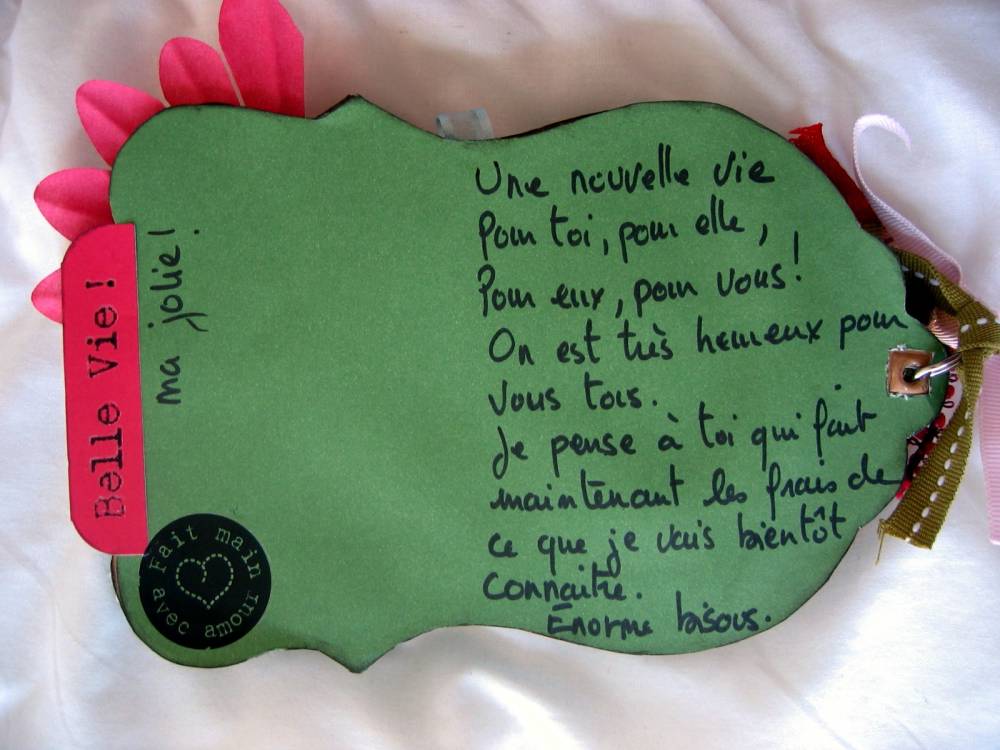 Belle Vie!
ma jolie!
Fait main
avec amour
Une nouvelle vie
Pour toi, pour elle,
Pour eux, pour vous!
On est très heureux pour
vous tous.
Je pense à toi qui fait
maintenant les frais de
ce que je vais bientôt
connaitre.
Enorme bisous.